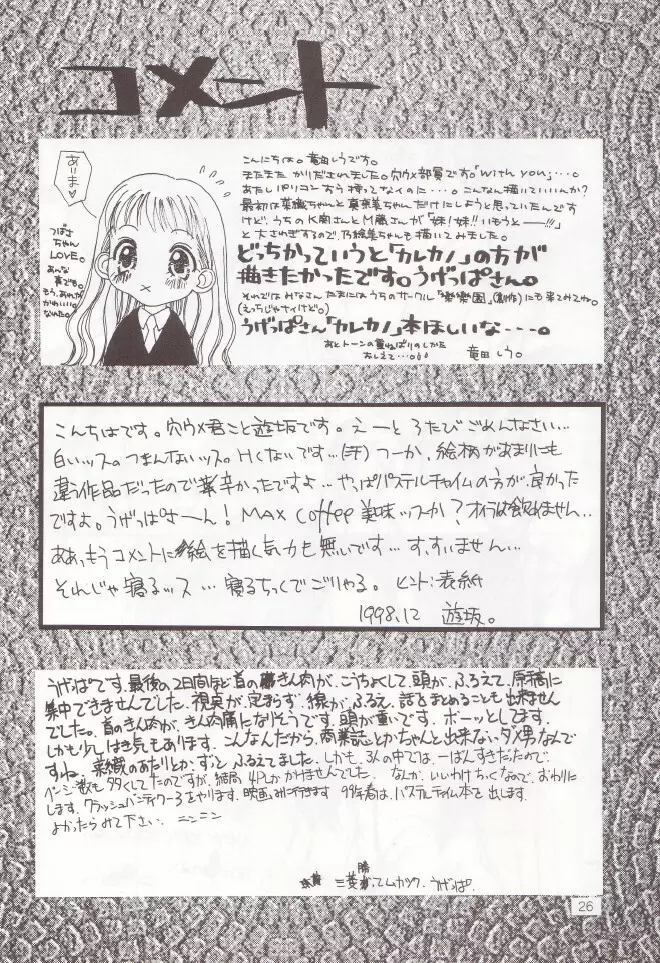 コメント
ありま♡
つばさ
ちゃん
LOVE。
あんな
妻でも。
もう、あれが
かわいい
なれた。
こんにちは。竜田しうです。
またまた かりだされました。穴ウメ部員です。「with you」・・・。
あたしパソコンすら持ってないのに・・・。こんなん描いていいんか?
最初は菜織ちゃんと真奈美ちゃんだけにしようと思っていたんです
けど、うちのK南さんとM蔵さんが「妹!妹!!いもうとー!!!」
と大さわぎするので、乃絵美ちゃんも描いてみました。
どっちかっていうと「カレカノ」の方が
描きたかったです。うげっぱさん。
それではみなさん たまにはうちのサークル「楽楽園」(創作)にも来てみてね。
(えっちじゃナイけど。)
うげっぱさん「カレカノ」本ほしいな---。
あとトーンの重ねばりのしかた
おしえて・・・。
竜田しう。
こんちはです。穴ウメ君こと遊坂です。えーと ろたびごめんなさい…
白いッス。つまんないッス。Hくないです…(汗) つーか、絵柄があまりにも
違う作品だったので辛かったですよ…やっぱパステルチャイムの方が良かった
ですよ。うげっぱさーん! MAX Coffee美味ッスか? オイラは飲めません…
ああっもうコメントに絵を描く気力も無いです…す、すいません…
そんじゃ寝るッス…寝るちっくでごりゃる。 ヒント:表紙
1998.12 遊坂。
うげっぱです。最後の2日間ほど首のきん肉が、こうちょくして、頭が、ふるえて、原稿に
集中できませんでした。視点が、定まらず、線が、ふるえ、話をまとめることも出来ません
でした。首のきん肉が、きん肉痛になりそうです。頭が重いです。ボーッとしてます。
しかも少しはき気もあります。こんなんだから、商業誌とかちゃんと出来ない、ダメ男なんで
すね。菜織のあたりとか、ずっと、ふるえてました。しかも、3人の中では、一ばんすきだたので、
ページ数も多くしてたのですが、結局、4Pしかかけませんでした。なんか、いいわけちっくなので、おわりに
します。クラッシュバンディクー3をやります。映画みに行きます。99年春は、パステルチャイム本を出します。
よかったらみて下さい。ニンニン
三菱 勝ってムカツク。うげっぱ。
26